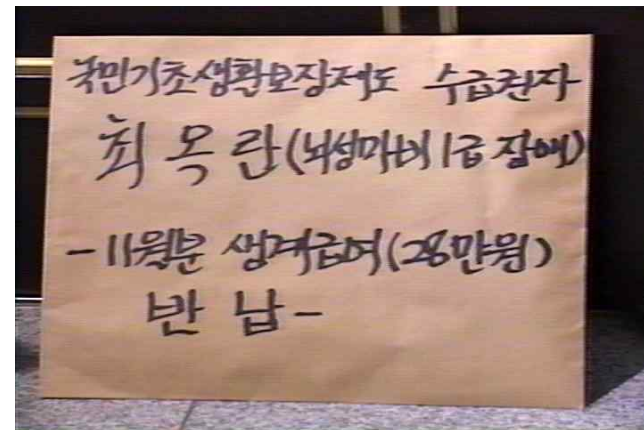 국민기초생활보장제도 수급권자
최옥란(뇌성마비 1급 장애)
-11월분 생계급여(28만원)
반 납-